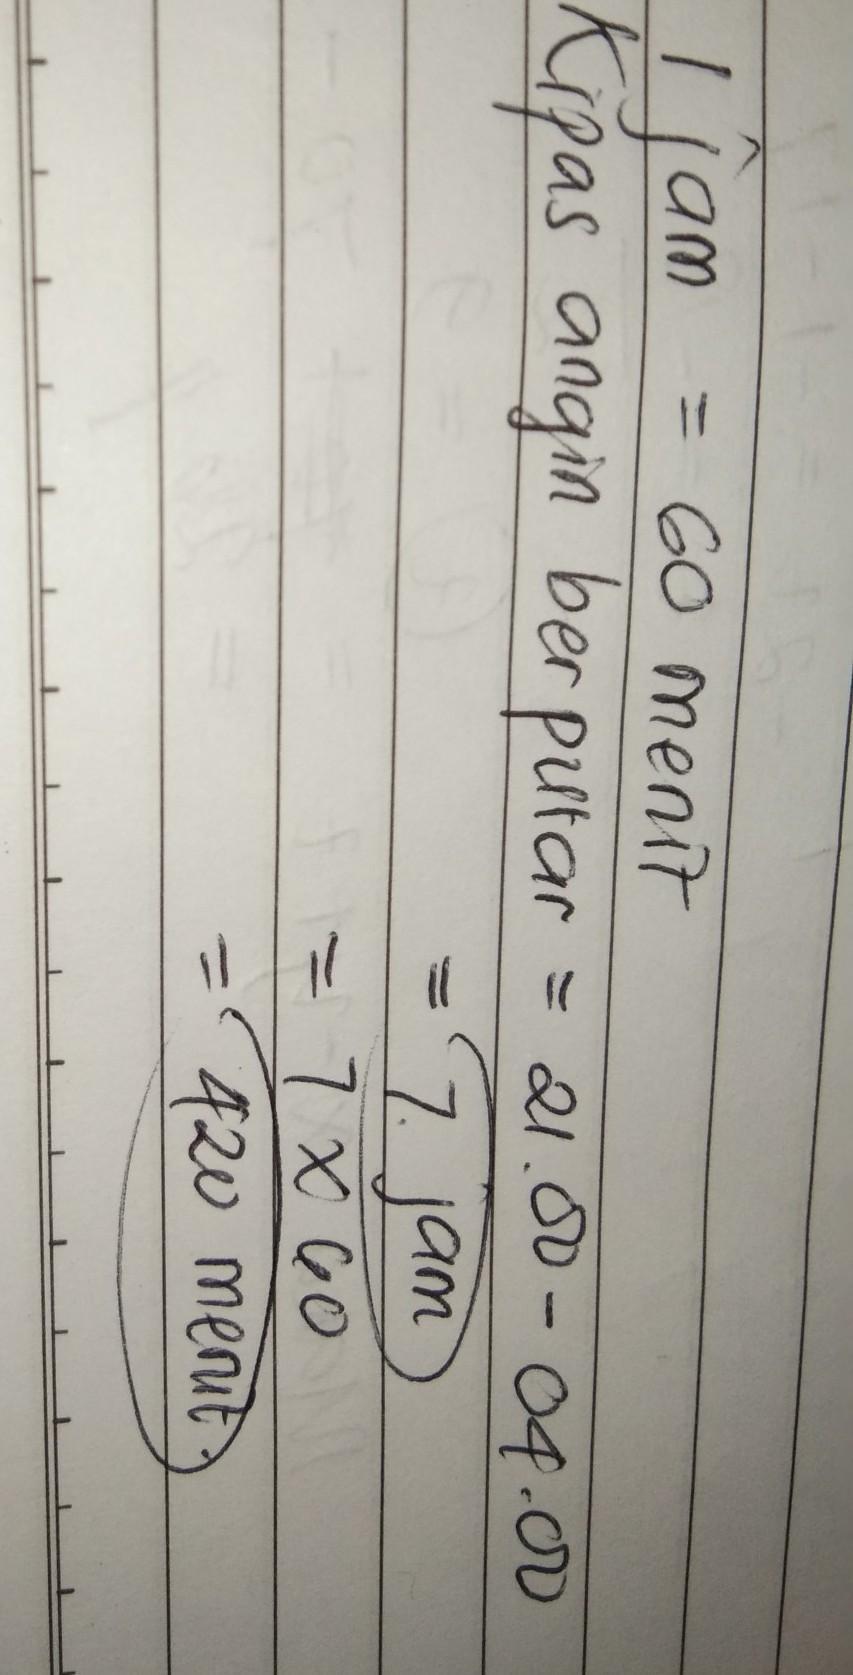 1 jam = 60 menit
Kipas angin berputar = 21.00 - 04.00
= 7 jam
= 7 x 60
= 420 menit.